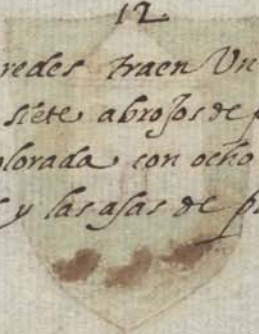 12.
redes traen Un
siete abrojos de p
olorada con ocho
y las asas de p